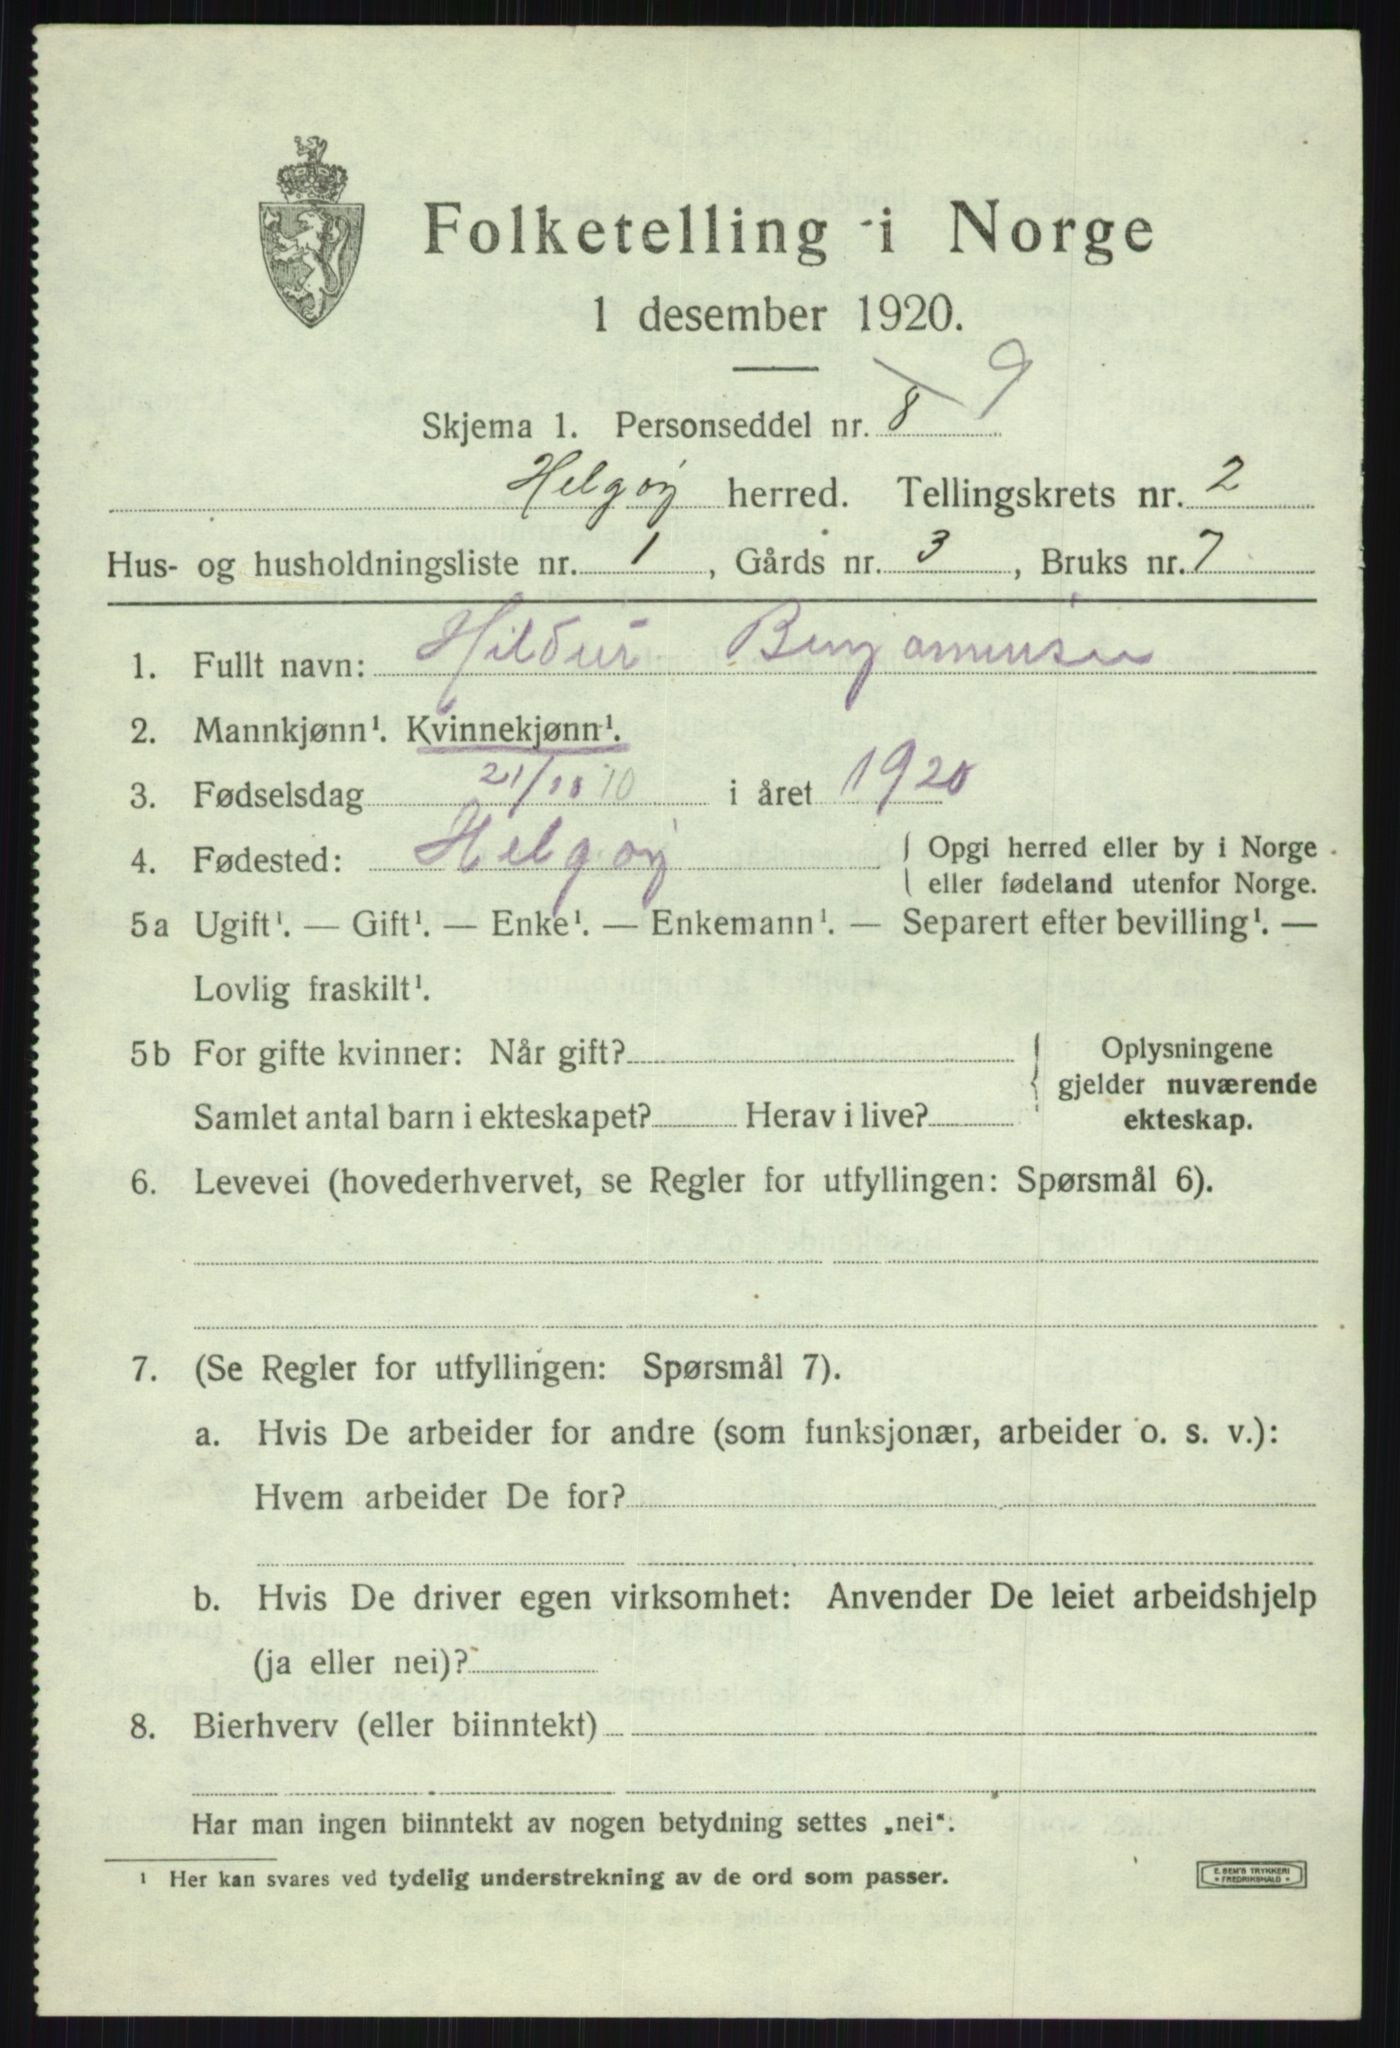 Folketelling i Norge
1 desember 1920.
Skjema 1. Personseddel nr. 8 9
Helgøy herred. Tellingskrets nr. 2
Hus- og husholdningsliste nr. 1, Gårds nr. 3, Bruks nr. 7
1. Fullt navn: Hildur Benjaminsen
2. Mannkjønn¹. Kvinnekjønn¹.
3. Fødselsdag 21/10 10 i året 1920
4. Fødested: Helgøy { Opgi herred eller by i Norge
eller fødeland utenfor Norge.
5a Ugift¹. — Gift¹. — Enke¹. — Enkemann¹. — Separert efter bevilling¹. —
Lovlig fraskilt¹.
5b For gifte kvinner: Når gift? { Oplysningene
gjelder nuværende
Samlet antal barn i ekteskapet? Herav i live? ekteskap.
6. Levevei (hovederhvervet, se Regler for utfyllingen: Spørsmål 6).
7. (Se Regler for utfyllingen: Spørsmål 7).
a. Hvis De arbeider for andre (som funksjonær, arbeider o. s. v.):
Hvem arbeider De for?
b. Hvis De driver egen virksomhet: Anvender De leiet arbeidshjelp
(ja eller nei)?
8. Bierhverv (eller biinntekt)
Har man ingen biinntekt av nogen betydning settes „nei“.
¹ Her kan svares ved tydelig understrekning av de ord som passer.
E. SEM'S TRYKKERI
* FREDRIKSHALD *